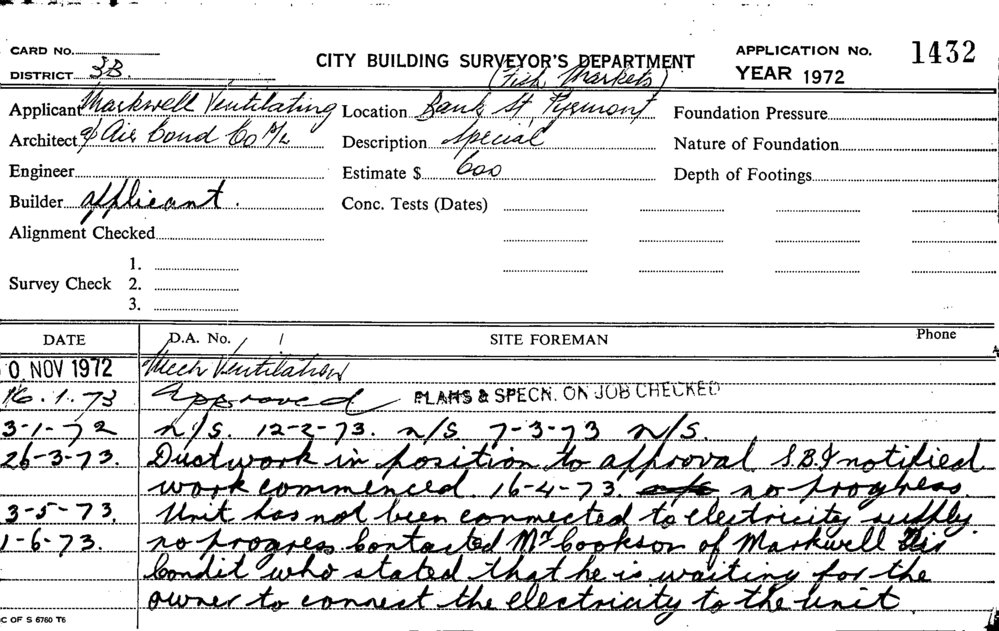 CARD No.
DISTRICT 3B.
CITY BUILDING SURVEYOR'S DEPARTMENT
APPLICATION No. 1432
YEAR 1972
(Fish Markets)
Applicant Markwell Ventilating
Location Bank St, Pyrmont
Foundation Pressure
Architect c/ Air Cond Co P/L
Description Special
Nature of Foundation
Engineer
Estimate $ 600
Depth of Footings
Builder applicant.
Conc. Tests (Dates)
Alignment Checked
Survey Check
1.
2.
3.
DATE
D.A. No.
SITE FOREMAN
Phone
0 NOV 1972 Mech Ventilation
16.1.73 Approved PLANS & SPECN. ON JOB CHECKED
3-1-72 n/s. 12-2-73. n/s 7-3-73 n/s.
26-3-73. Ductwork in position to approval S.B.I notified
work commenced. 16-4-73. no progress.
3-5-73. Unit has not been connected to electricity supply.
1-6-73. no progress. Contacted Mr Cookson of Markwell Air
Condit who stated that he is waiting for the
owner to connect the electricity to the unit.
C OF S 6760 T6